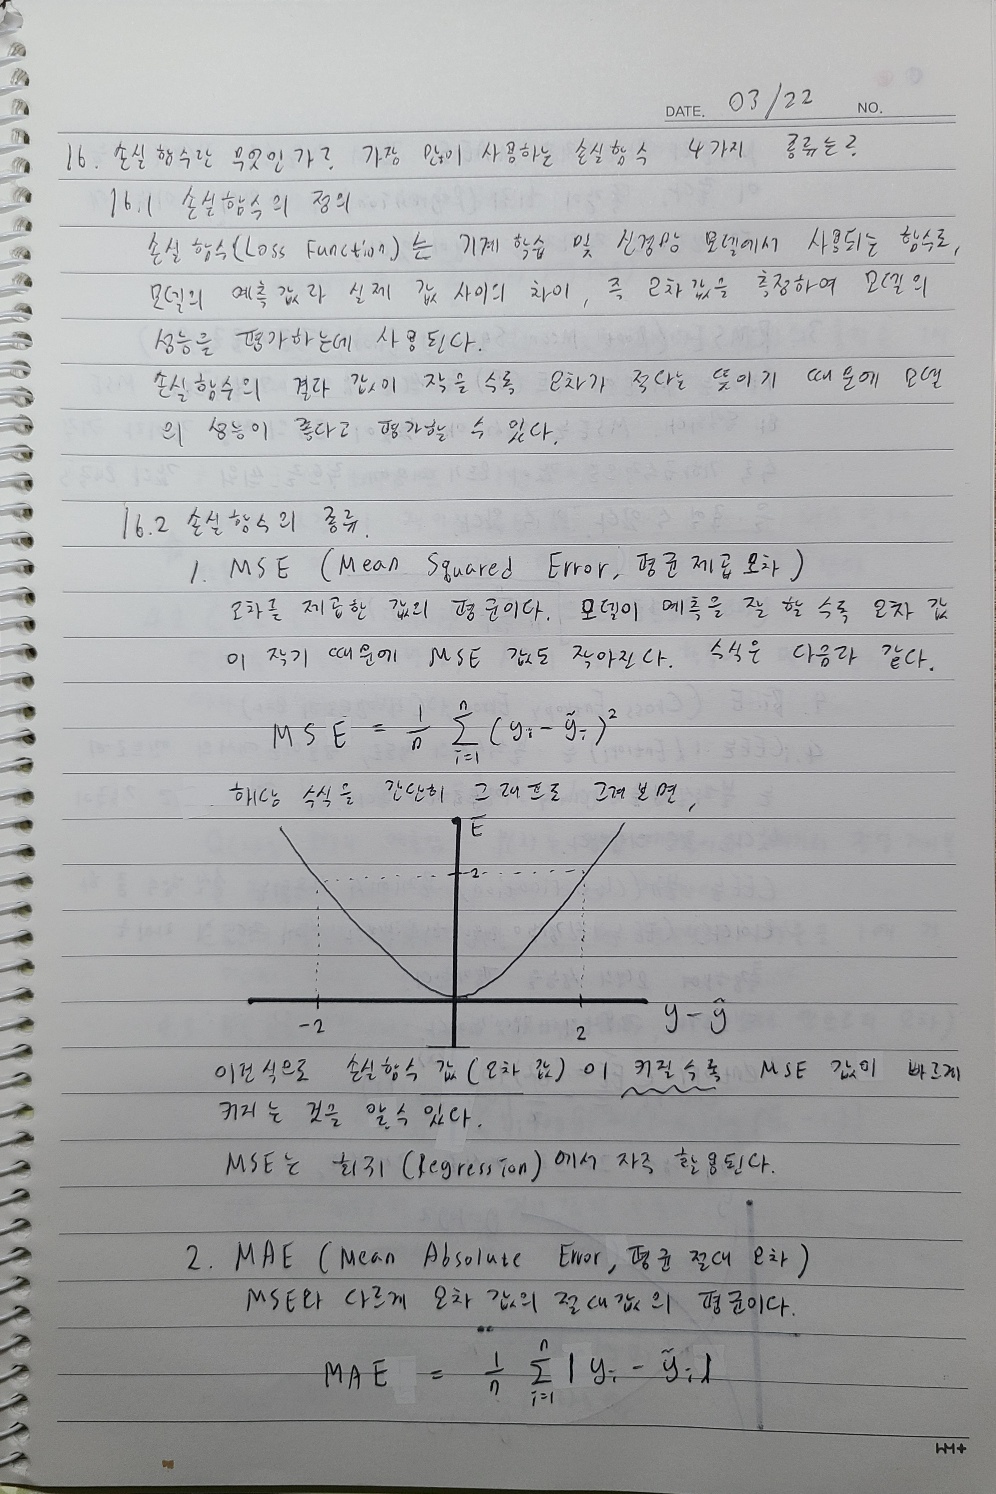 DATE. 03/22 NO.
16. 손실함수란 무엇인가? 가장 많이 사용하는 손실함수 4가지 종류는?
16.1 손실함수의 정의
손실함수(Loss Function)는 기계 학습 및 신경망 모델에서 사용되는 함수로,
모델의 예측 값과 실제 값 사이의 차이, 즉 오차값을 측정하여 모델의
성능을 평가하는데 사용된다.
손실함수의 결과 값이 작을 수록 오차가 적다는 뜻이기 때문에 모델
의 성능이 좋다고 평가할 수 있다.
16.2 손실함수의 종류.
1. MSE (Mean Squared Error, 평균제곱오차)
오차를 제곱한 값의 평균이다. 모델이 예측을 잘 할 수록 오차 값
이 작기 때문에 MSE 값도 작아진다. 수식은 다음과 같다.
MSE = 1/n Σ i=1 n (yi - ỹi)²
해당 수식을 간단히 그래프로 그려보면,
E
2
-2 2 y - ŷ
이런식으로 손실함수 값(오차 값)이 커질수록 MSE 값이 빠르게
커지는 것을 알 수 있다.
MSE는 회귀(Regression)에서 자주 활용된다.
2. MAE (Mean Absolute Error, 평균 절대 오차)
MSE와 다르게 오차 값의 절대값의 평균이다.
MAE = 1/n Σ i=1 n |yi - ỹi|